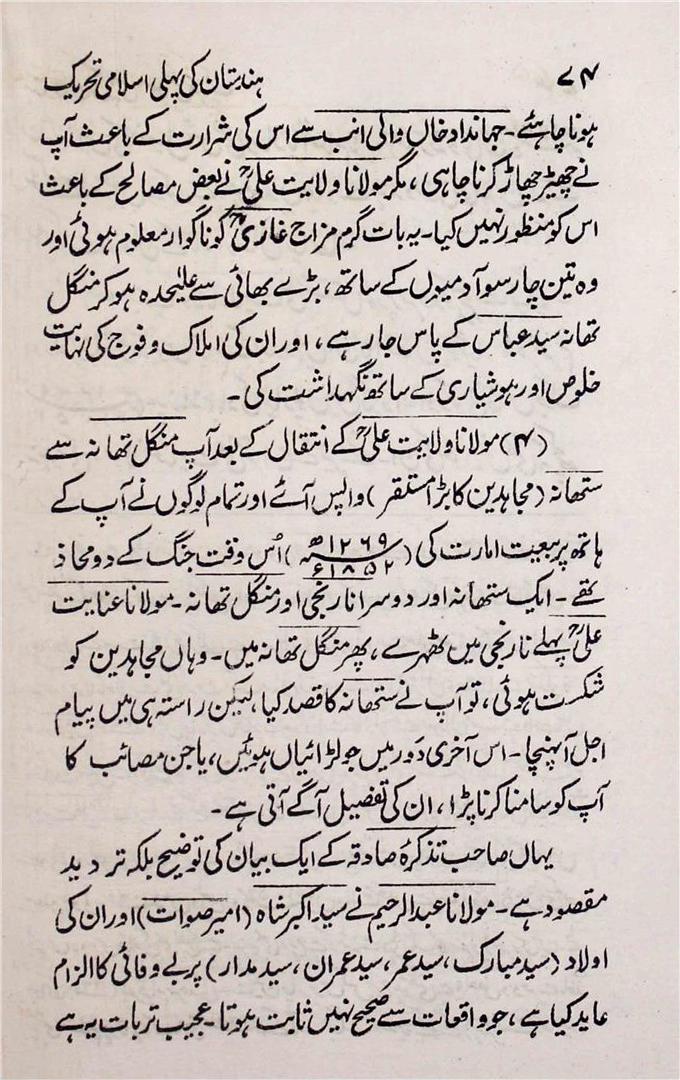 ۷۴ ہندستان کی پہلی اسلامی تحریک
ہونا چاہئے ۔ جہانداد خاں والی انب سے اس کی شرارت کے باعث آپ
نے چھیڑ چھاڑ کرنا چاہی ، مگر مولانا ولایت علیؒ نے بعض مصالح کے باعث
اس کو منظور نہیں کیا ۔ یہ بات گرم مزاج غازیؒ کو ناگوار معلوم ہوئی اور
وہ تین چار سو آدمیوں کے ساتھ ، بڑے بھائی سے علیٰحدہ ہو کر منگل
تھانہ سید عباس کے پاس جا رہے ، اور ان کی املاک و فوج کی نہایت
خلوص اور ہوشیاری کے ساتھ نگہداشت کی ۔
(۴) مولانا ولایت علیؒ کے انتقال کے بعد آپ منگل تھانہ سے
ستھانہ (مجاہدین کا بڑا مستقر) واپس آئے اور تمام لوگوں نے آپ کے
ہاتھ پر بیعت امارت کی (۱۲۶۹ھ / ۱۸۵۲ء) اُس وقت جنگ کے دو محاذ
تھے ۔ ایک ستھانہ اور دوسرا نارنجی اور منگل تھانہ ۔ مولانا عنایت
علیؒ پہلے نارنجی میں ٹھہرے ، پھر منگل تھانہ میں ۔ وہاں مجاہدین کو
شکست ہوئی ، تو آپ نے ستھانہ کا قصد کیا ، لیکن راستہ ہی میں پیام
اجل آپہنچا ۔ اس آخری دَور میں جو لڑائیاں ہوئیں ، یا جن مصائب کا
آپ کو سامنا کرنا پڑا ، ان کی تفصیل آگے آتی ہے ۔
یہاں صاحب تذکرۂ صادقہ کے ایک بیان کی توضیح بلکہ تردید
مقصود ہے ۔ مولانا عبدالرحیم نے سید اکبر شاہ (امیر صوات) اور ان کی
اولاد (سید مبارک ، سید عمر ، سید عمران ، سید مدار) پر بے وفائی کا الزام
عاید کیا ہے ، جو واقعات سے صحیح نہیں ثابت ہوتا ۔ عجیب تر بات یہ ہے